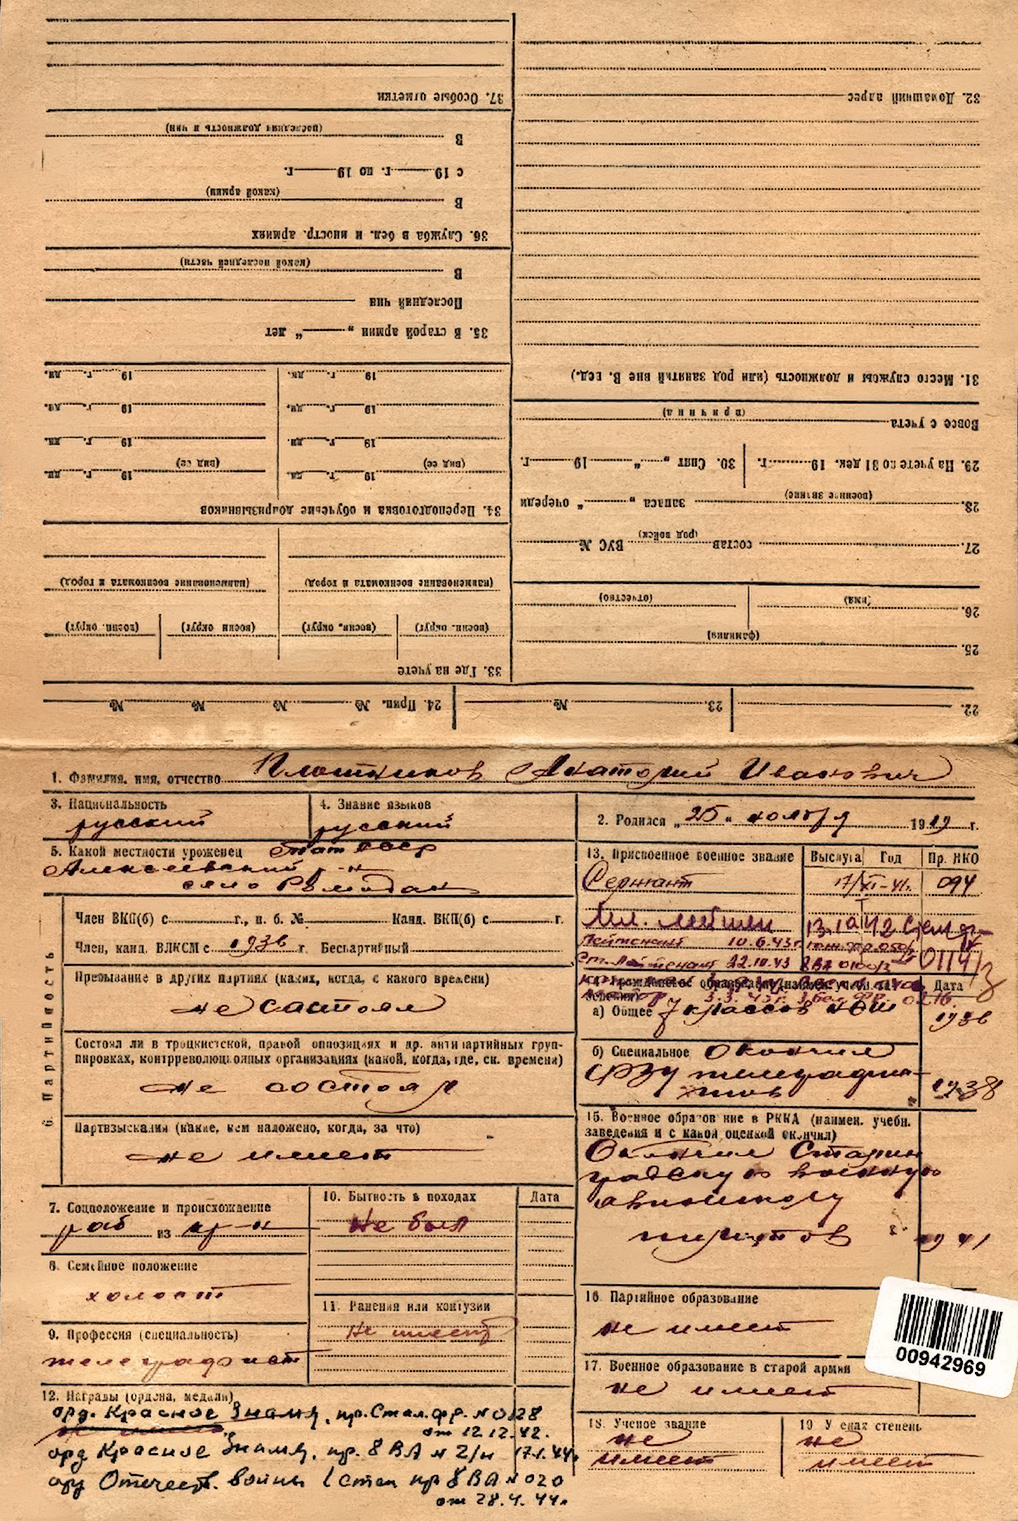 37. Особые отметки
32. Домашний адрес
В
(последняя должность и чин)
с 19 г. по 19 г.
В
(какой армии)
36. Служба в бел. и иностр. армиях
В
(какой последней части)
Последний чин
35. В старой армии „ “ лет
19 г. дн. 19 г. дн.
19 г. дн. 19 г. дн.
19 г. дн. 19 г. дн.
(вид ее) (вид ее)
19 г. дн. 19 г. дн.
34. Переподготовка и обучение допризывников
31. Место службы и должность (или род занятий вне В. вед.)
(причина)
Вовсе с учета
29. На учете по 31 дек. 19 г. 30. Снят „ “ 19 г.
28. (военное звание) запаса „ “ очереди
27. состав (род войск) ВУС №
(наименование военкомата и город) (наименование военкомата и город)
26. (имя) (отчество)
(военн. округ) (военн. округ) (военн. округ) (военн. округ)
25. (фамилия)
33. Где на учете
22. 23. № 24. Прип. № № № №
1. Фамилия, имя, отчество Плотников Анатолий Иванович
3. Национальность русский
4. Знание языков русский
2. Родился „25“ ноября 1919 г.
5. Какой местности уроженец Тат АССР
Алексеевский р-н
село Ромодан
6. Партийность
Член ВКП(б) с г., п. б. № Канд. ВКП(б) с г.
Член, канд. ВЛКСМ с 1936 г. Беспартийный
Пребывание в других партиях (каких, когда, с какого времени)
не состоял
Состоял ли в троцкистской, правой оппозициях и др. антипартийных груп-
пировках, контрреволюционных организациях (какой, когда, где, ск. времени)
не состоял
Партвзыскания (какие, кем наложено, когда, за что)
не имеет
7. Соцположение и происхождение
раб из кр-н
8. Семейное положение
холост
9. Профессия (специальность)
телеграфист
10. Бытность в походах Дата
Не был
11. Ранения или контузии
Не имеет
12. Награды (ордена, медали)
орд. Красное Знамя, пр. Стал. фр. № 0128
от 12.12.42.
орд Красное Знамя, пр. 8 ВА № 2/н 17.1.44г
орд Отечеств. войны 1 степ пр 8 ВА № 020
от 28.4.44г
13. Присвоенное военное звание Выслуга Год Пр. НКО
Сержант 17/XI-41. 094
Мл. лейтен 13.10.42
Лейтенант 10.6.43г
Ст. Лейтенант 22.10.43 8ВА
Дата
а) Общее 7 классов НСШ 1936
б) Специальное Окончил
ФЗУ телеграфис-
тов 1938
15. Военное образование в РККА (наимен. учебн.
заведения и с какой оценкой окончил)
Окончил Сталин
градскую военную
авиашколу
пилотов 1941
16. Партийное образование
не имеет
17. Военное образование в старой армии
не имеет
18. Ученое звание
не
имеет
19. Ученая степень
не
имеет
00942969